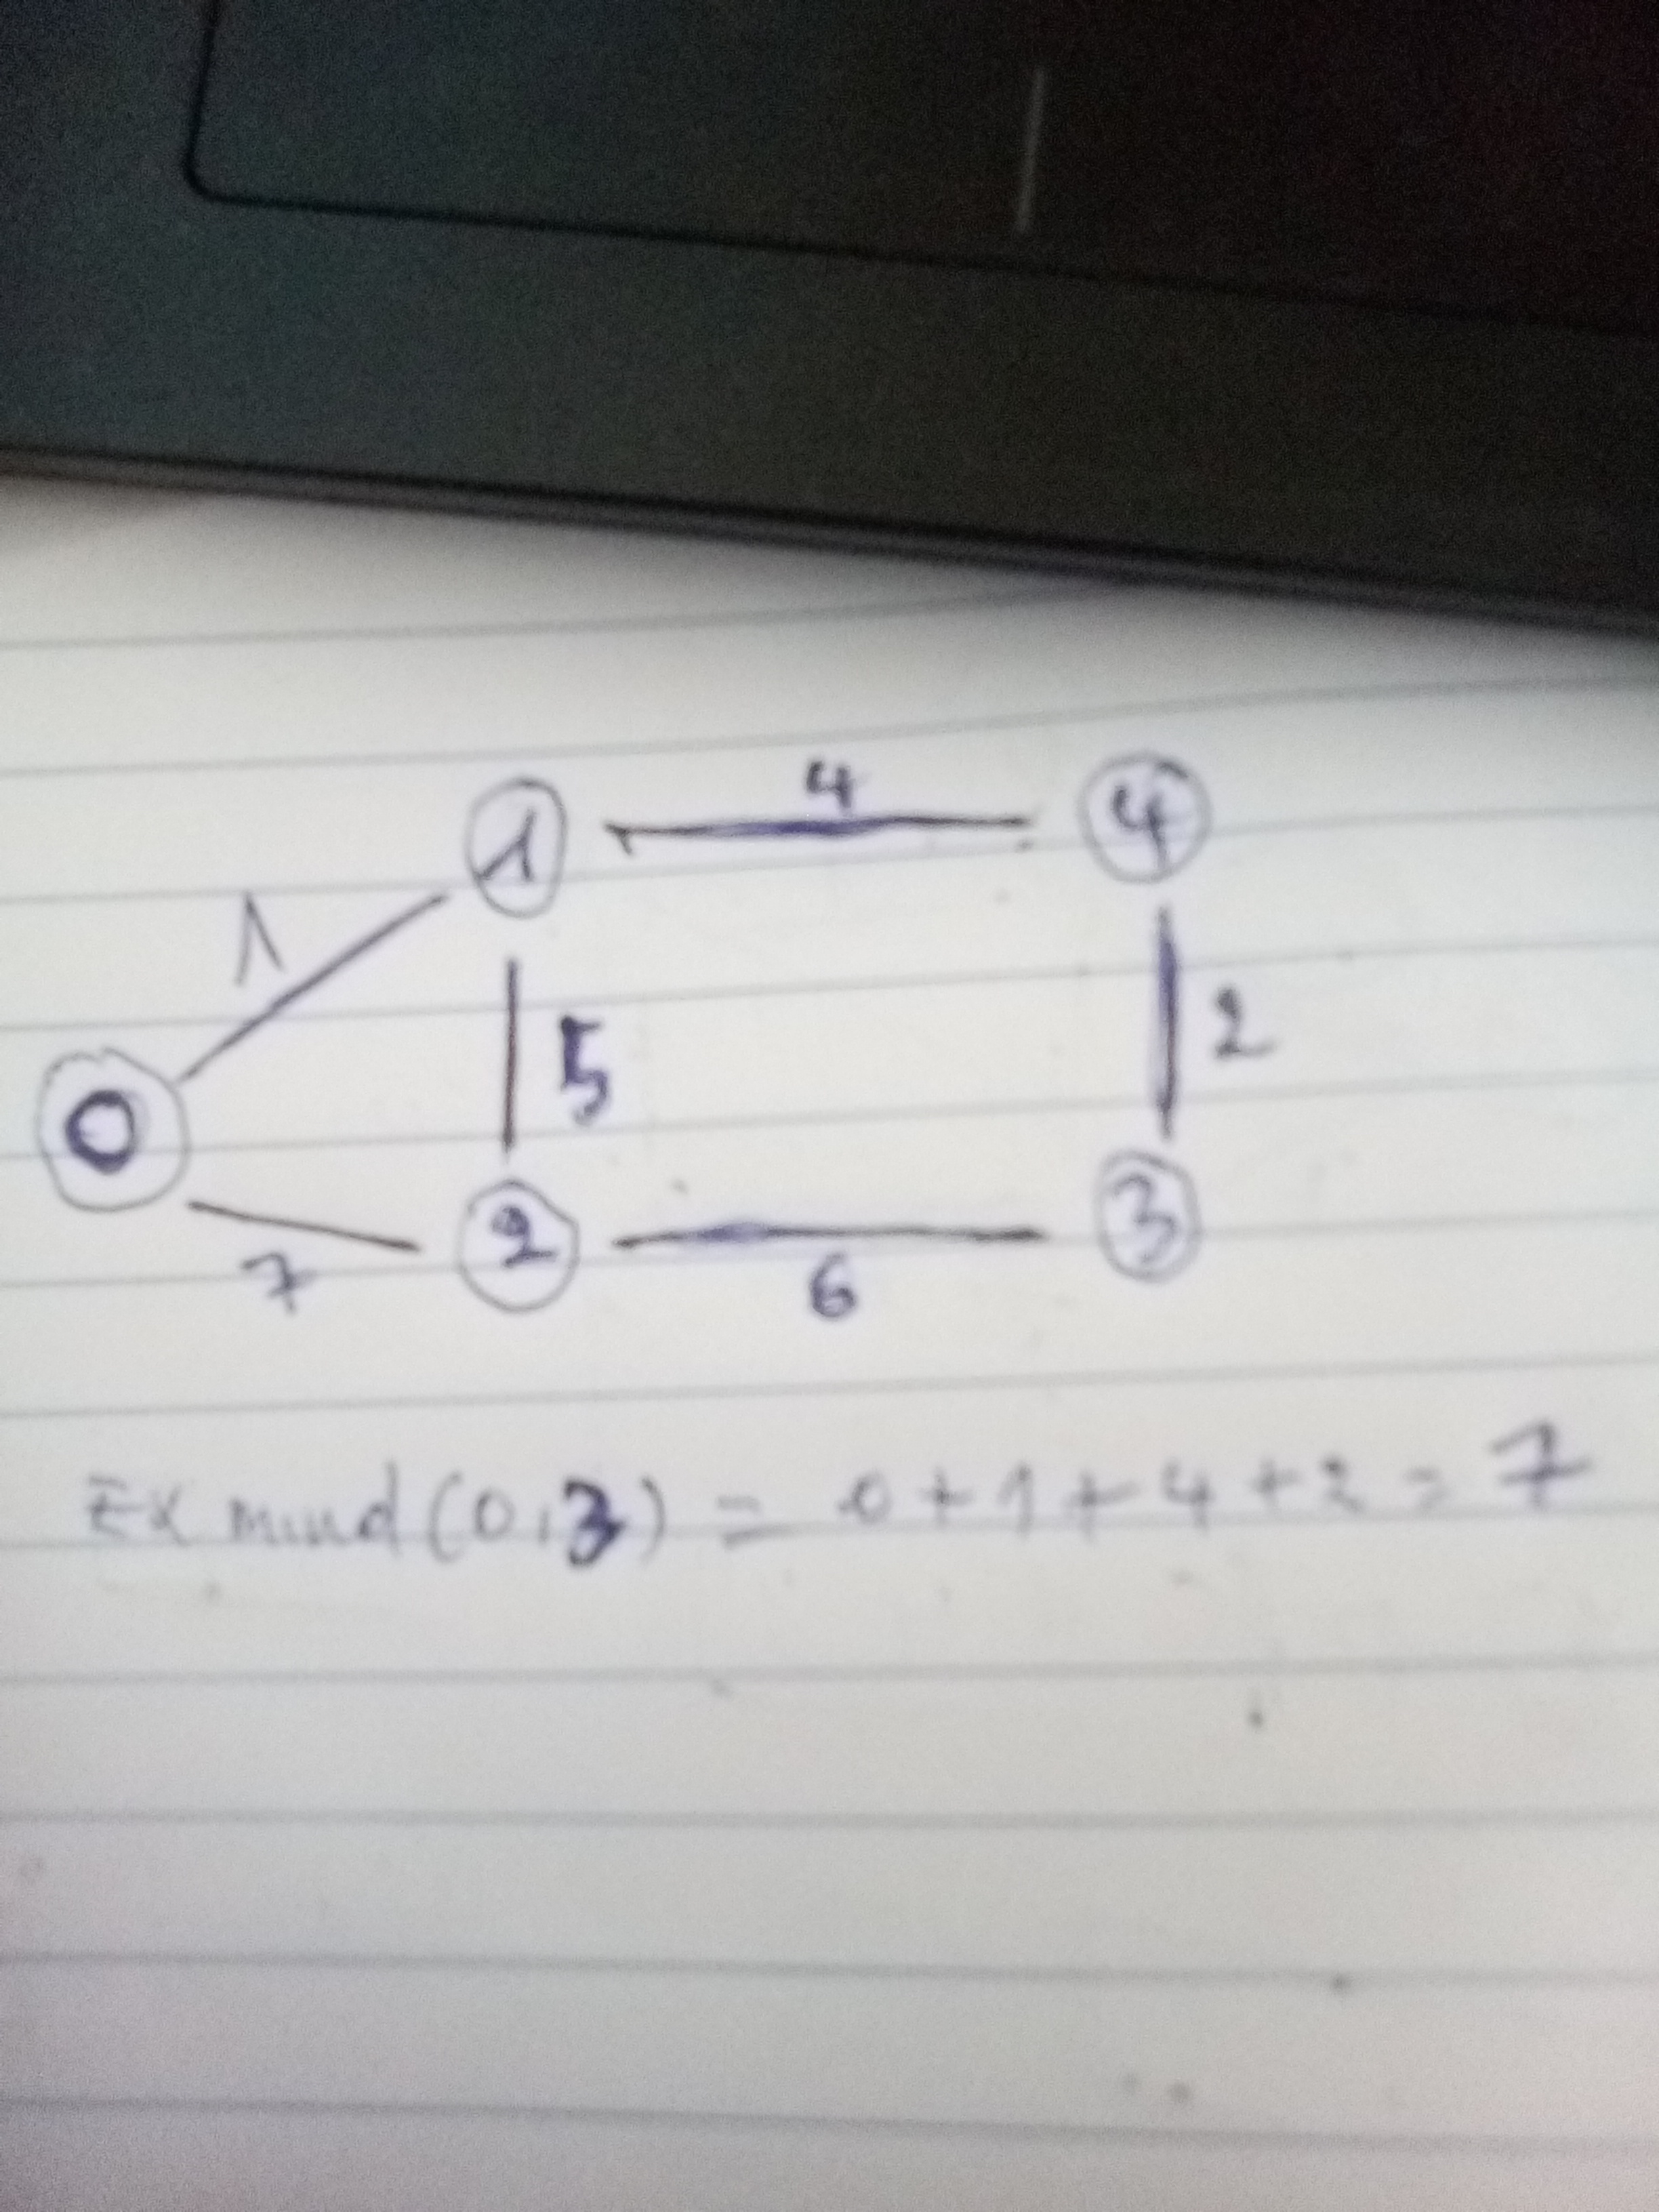 4
1
4
1
5
2
0
2
3
7
6
Ex mind(0,3) = 0+1+4+2=7